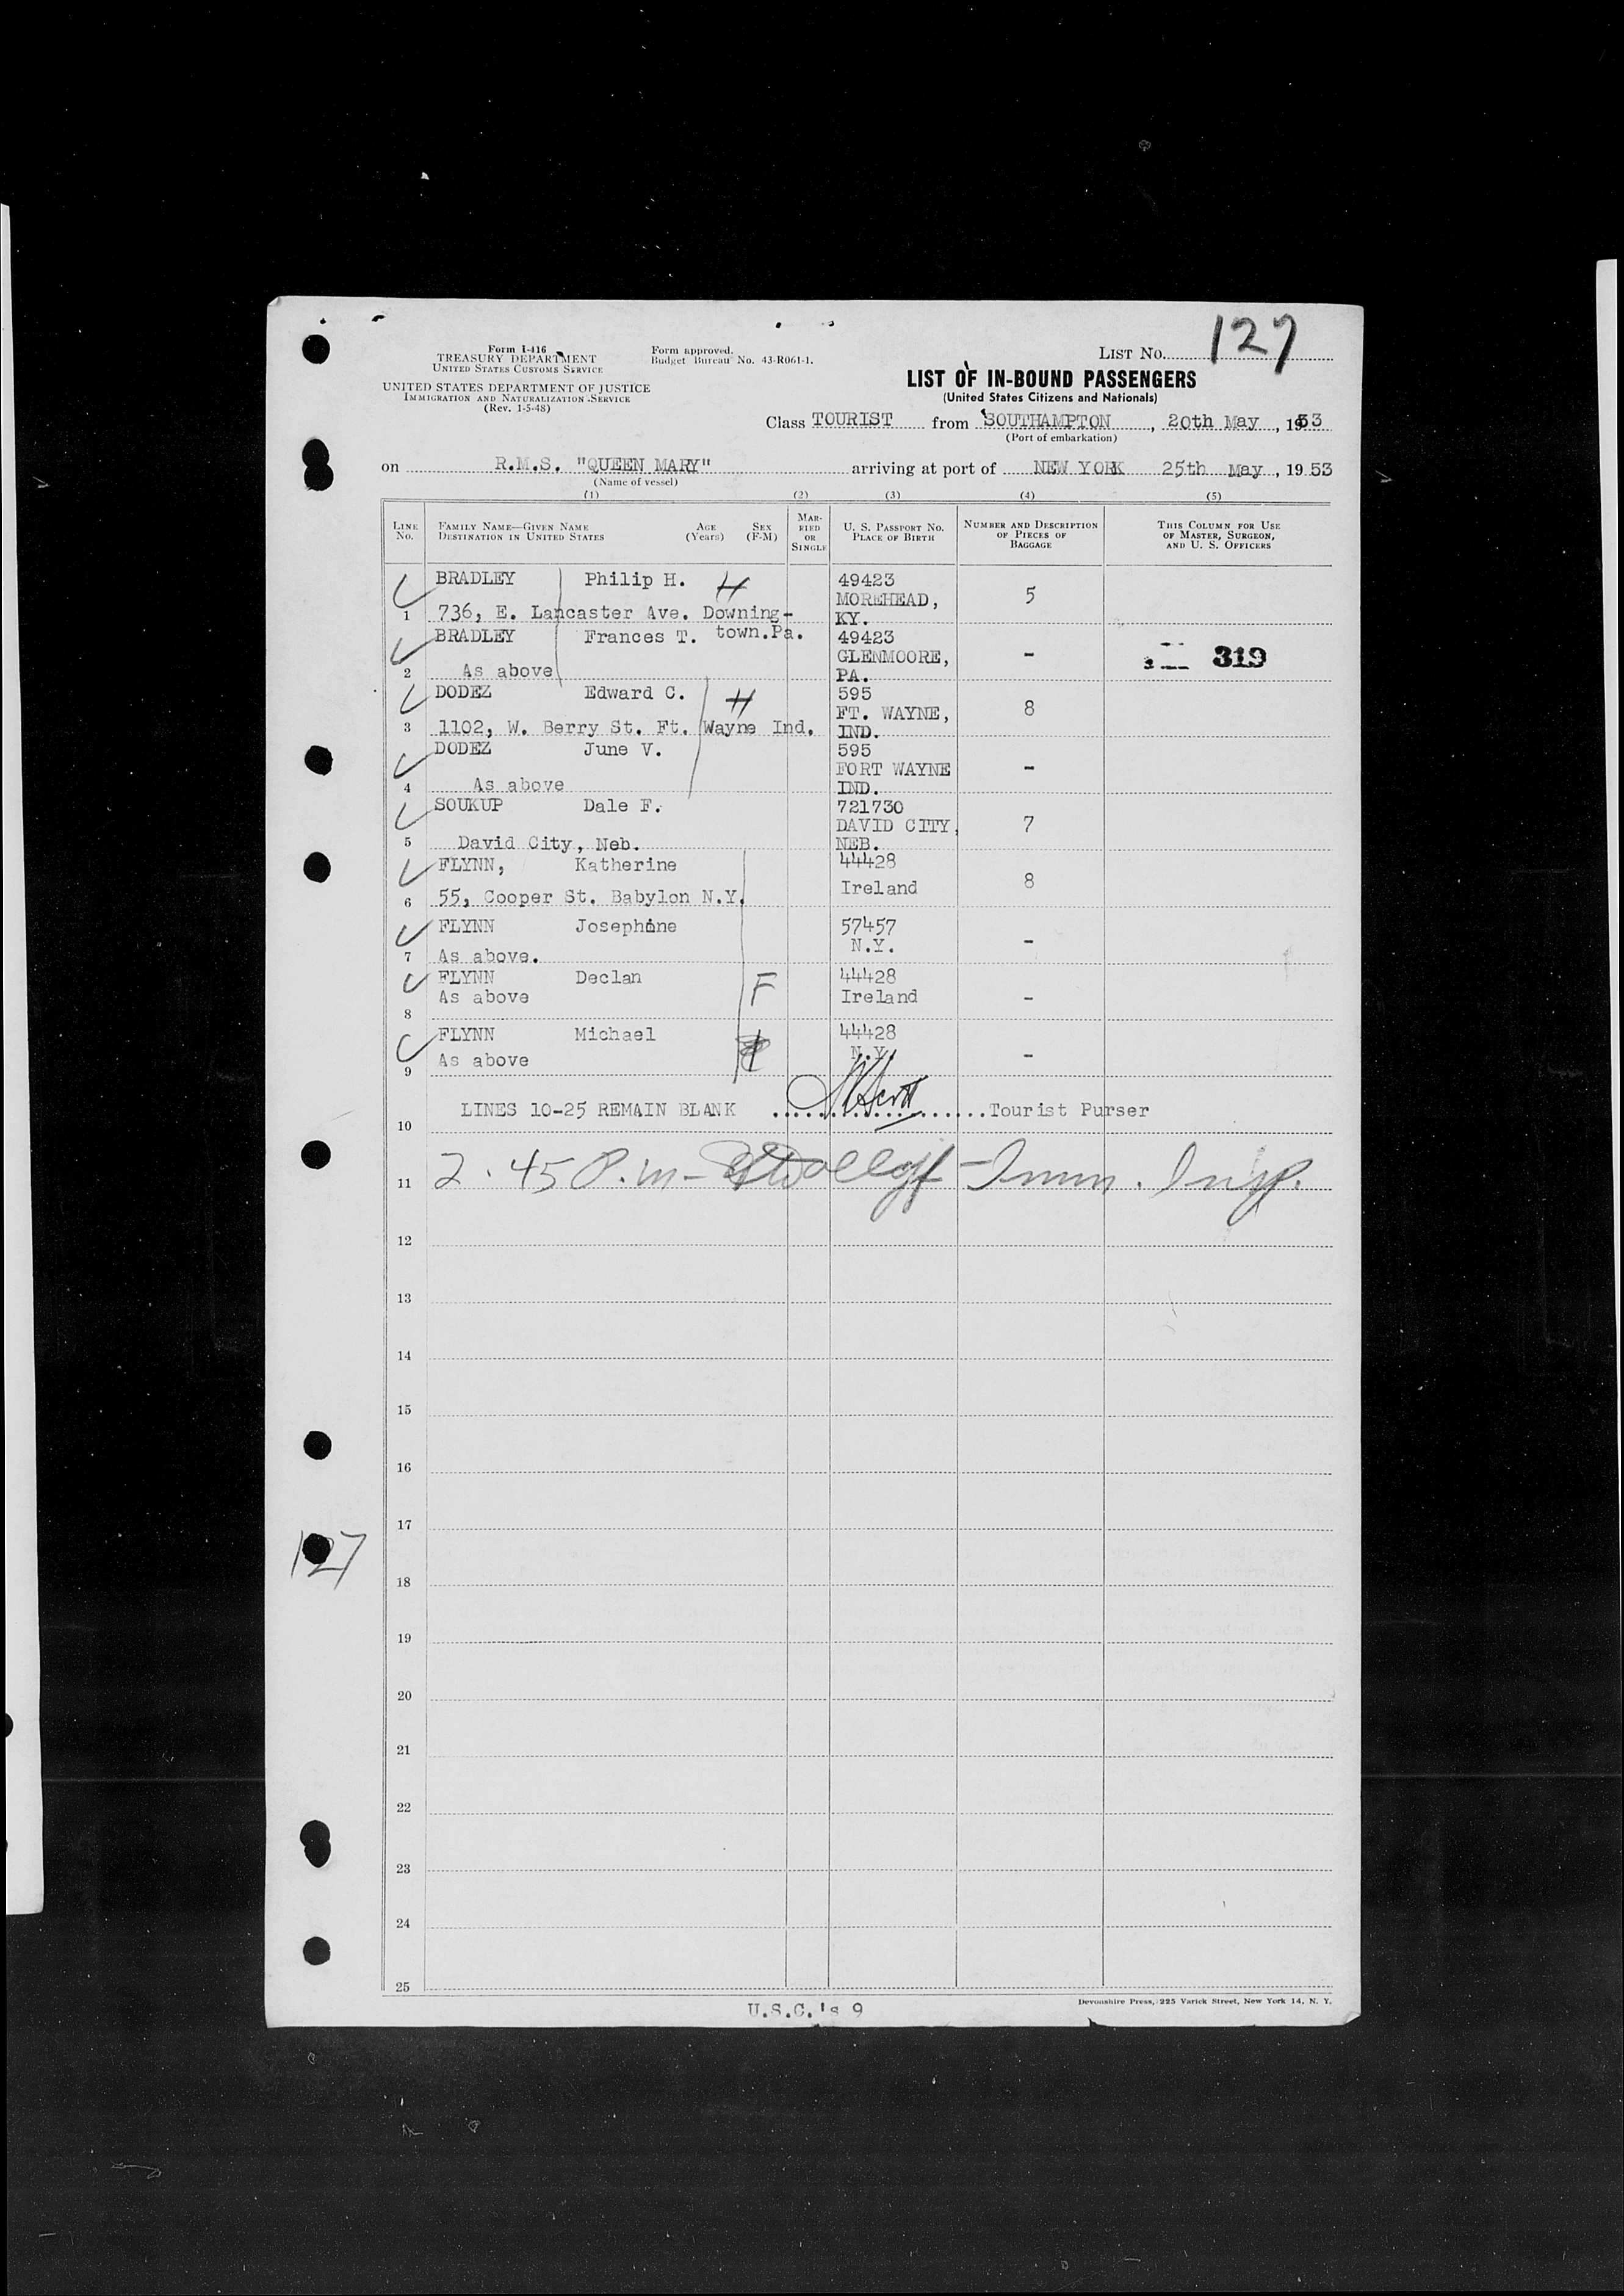 127
Form I-416
TREASURY DEPARTMENT
UNITED STATES CUSTOMS SERVICE
Form approved.
Budget Bureau No. 43-R061-1.
LIST NO.
UNITED STATES DEPARTMENT OF JUSTICE
IMMIGRATION AND NATURALIZATION SERVICE
(Rev. 1-5-48)
LIST OF IN-BOUND PASSENGERS
(United States Citizens and Nationals)
Class TOURIST from SOUTHAMPTON, 20th May, 1953
(Port of embarkation)
on R.M.S. "QUEEN MARY" arriving at port of NEW YORK 25th May, 1953
(Name of vessel)
(1) (2) (3) (4) (5)
LINE NO.
FAMILY NAME—GIVEN NAME AGE SEX
DESTINATION IN UNITED STATES (Years) (F-M)
MAR-
RIED
OR
SINGLE
U. S. PASSPORT NO.
PLACE OF BIRTH
NUMBER AND DESCRIPTION
OF PIECES OF
BAGGAGE
THIS COLUMN FOR USE
OF MASTER, SURGEON,
AND U. S. OFFICERS
BRADLEY Philip H. H 49423
MOREHEAD, 5
1 736, E. Lancaster Ave. Downing- KY.
BRADLEY Frances T. town.Pa. 49423
GLENMOORE, - 319
2 As above PA.
DODEZ Edward C. H 595
FT. WAYNE, 8
3 1102, W. Berry St. Ft. Wayne Ind. IND.
DODEZ June V. 595
FORT WAYNE -
4 As above IND.
SOUKUP Dale F. 721730
DAVID CITY, 7
5 David City, Neb. NEB.
FLYNN, Katherine 44428
Ireland 8
6 55, Cooper St. Babylon N.Y.
FLYNN Josephine 57457
N.Y. -
7 As above.
FLYNN Declan F 44428
As above Ireland -
8
FLYNN Michael 44428
As above N.Y. -
9
LINES 10-25 REMAIN BLANK Scott Tourist Purser
10
11 2.45 P.m- - Imm. Insp.
12
13
14
15
16
17
127
18
19
20
21
22
23
24
25
U.S.C.'s 9
Devonshire Press, 225 Varick Street, New York 14, N. Y.